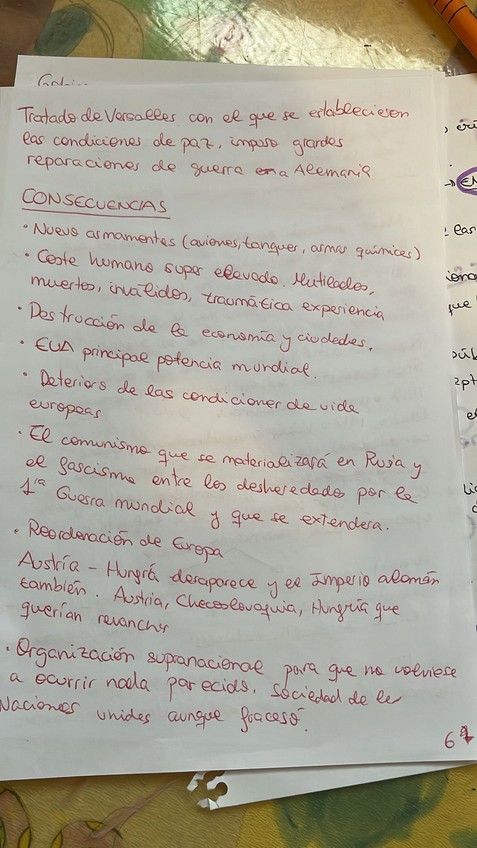 Tratado de Versalles con el que se establecieron
las condiciones de paz, impuso grandes
reparaciones de guerra a Alemania
CONSECUENCIAS
• Nuevo armamentos (aviones, tanques, armas químicas)
• Coste humano super elevado. Mutilados,
muertos, inválidos, traumática experiencia
• Destrucción de la economía y ciudades.
• EUA principal potencia mundial.
• Deterioro de las condiciones de vida
europeas
• El comunismo que se materializará en Rusia y
el fascismo entre los desheredados por la
1ª Guerra mundial y que se extendera.
• Reordenación de Europa
Austria - Hungrá desaparece y el Imperio alemán
también. Austria, Checoslovaquia, Hungría que
querían revancha
• Organización supranacional para que no volviese
a ocurrir nada parecido. Sociedad de le
Naciones unides aunque fracasó.
6